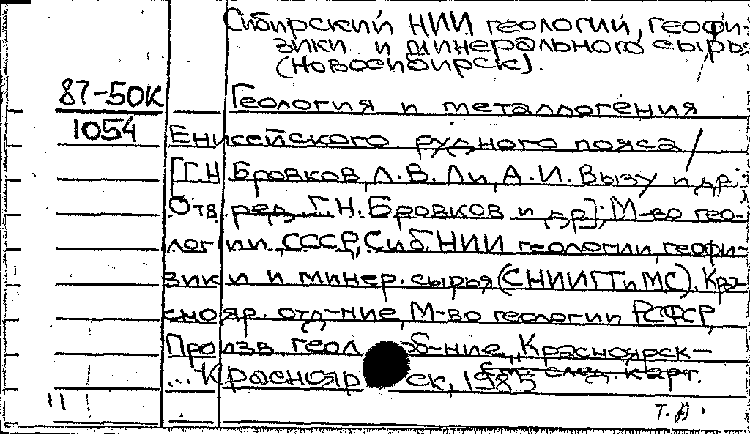 Сибирский НИИ геологии, геофи-
зики и минерального сырья
(Новосибирск).
87-50К
1054
Геология и металлогения
Енисейского рудного пояса /
[Г.Н. Бровков, Л.В. Ли, А.И. Вызу и др.;
Отв. ред. Г.Н. Бровков и др.]; М-во гео-
логии СССР, Сиб. НИИ геологии, геофи-
зики и минер. сырья (СНИИГГиМС). Кра-
снояр. отд-ние, М-во геологии РСФСР,
Произв. геол. об-ние „Красноярск-
... Красноярск, 1985
см. след. карт.
11
Т. А.